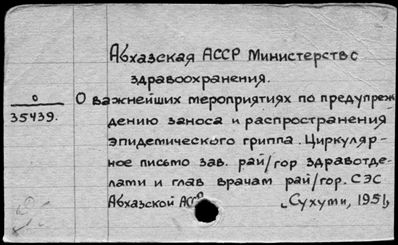 Абхазская АССР Министерство
здравоохранения.
О важнейших мероприятиях по предупреж
дению заноса и распространения
эпидемического гриппа. Циркуляр-
ное письмо зав. рай/гор здравотде-
лами и глав врачам рай/гор. СЭС
Абхазской АССР Сухуми, 1951,
0
35439.